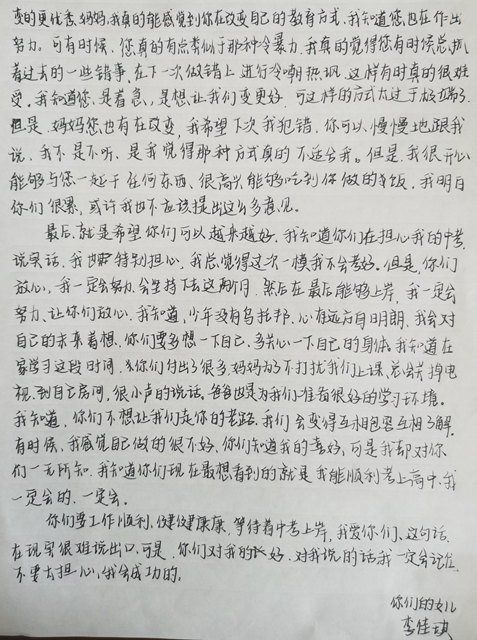 变的更优秀,妈妈,我真的能感觉到你在改变自己的教育方式,我知道您也在作出
努力。可有时候,您真的有点类似于那种冷暴力,我真的觉得您有时候总抓
着过去的一些错事,在下一次做错上进行冷嘲热讽,这样有时真的很难
受。我知道您、是着急、是想让我们变更好,可这样的方式太过于极端了,
但是,妈妈您也有在改变,我希望下次我犯错,你可以、慢慢地跟我
说,我不是不听、是我觉得那种方式真的不适合我。但是,我很开心
能够与您一起干任何东西、很高兴能够吃到你做的饭,我明白
你们很累,或许我也不应该提出这么多意见。
最后,就是希望你们可以越来越好。我知道你们在担心我的中考,
说实话,我也特别担心,我总觉得这次一模我不会考好。但是,你们
放心,我一定会努力,会坚持下去这两个月,然后在最后能够上岸,我一定会
努力,让你们放心,我知道,少年没有乌托邦,心有远方自明朗,我会对
自己的未来着想,你们要多想一下自己,多关心一下自己的身体。我知道在
家学习这段时间,你们付出了很多,妈妈为了不打扰我们上课,总会关掉电
视,到自己房间,很小声的说话。爸爸也是为我们准备很好的学习环境。
我知道,你们不想让我们走你的老路,我们会变得互相包容互相了解,
有时候,我感觉自己做的很不好,你们知道我的喜好,可是我却对你
们一无所知,我知道你们现在最想看到的就是我能顺利考上高中,我
一定会的,一定会。
你们要工作顺利,健健康康,等待着中考上岸,我爱你们、这句话
在现实很难说出口,可是,你们对我的好,对我说的话我一定会记住,
不要去担心,我会成功的。
你们的女儿
李佳琪